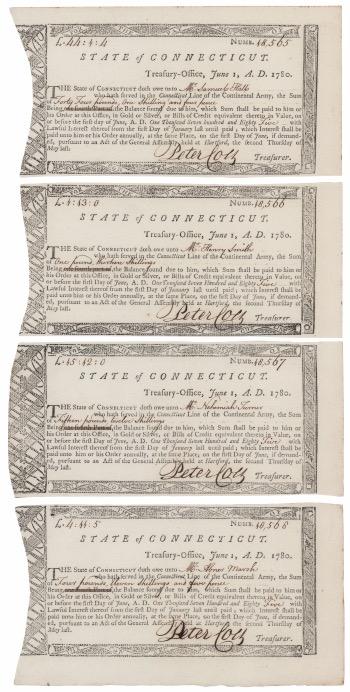 L. 44:1:4 NUMB. 18,565
STATE of CONNECTICUT.
Treasury-Office, June 1, A. D. 1780.
THE State of CONNECTICUT doth owe unto Mr Samuel
who hath served in the Connecticut Line of the Continental Army, the Sum
of Forty Four pounds, One Shilling and four pence
Being the Balance found due to him, which Sum shall be paid to him or
his Order at this Office, in Gold or Silver, or Bills of Credit equivalent thereto in Value, on
or before the first Day of June, A. D. One Thousand Seven Hundred and Eighty Five with
Lawful Interest thereof from the first Day of January last until paid; which Interest shall be
paid unto him or his Order annually, at the same Place, on the first of June, if demand-
ed, pursuant to an Act of the General Assembly, held at Hartford, the second Thursday of
May last.
Peter Colt Treasurer.
NUMB. 18,566
STATE of CONNECTICUT.
Treasury-Office, June 1, A. D. 1780.
THE State of CONNECTICUT doth owe unto Mr Henry
who hath served in the Connecticut Line of the Continental Army, the Sum
of pounds Shillings
Being the Balance found due to him, which Sum shall be paid to him or
his Order at this Office, in Gold or Silver, or Bills of Credit equivalent thereto in Value, on
or before the first Day of June, A. D. One Thousand Seven Hundred and Eighty Five with
Lawful Interest thereof from the first Day of January last until paid; which Interest shall be
paid unto him or his Order annually, at the same Place, on the first of June, if demand-
ed, pursuant to an Act of the General Assembly, held at Hartford, the second Thursday of
May last.
Peter Colt Treasurer.
L. 15:12:0 NUMB. 18,567
STATE of CONNECTICUT.
Treasury-Office, June 1, A. D. 1780.
THE State of CONNECTICUT doth owe unto Mr Nehemiah Turner
who hath served in the Connecticut Line of the Continental Army, the Sum
of Fifteen pounds twelve Shillings
Being the Balance found due to him, which Sum shall be paid to him or
his Order at this Office, in Gold or Silver, or Bills of Credit equivalent thereto in Value, on
or before the first Day of June, A. D. One Thousand Seven Hundred and Eighty Five with
Lawful Interest thereof from the first Day of January last until paid; which Interest shall be
paid unto him or his Order annually, at the same Place, on the first of June, if demand-
ed, pursuant to an Act of the General Assembly, held at Hartford, the second Thursday of
May last.
Peter Colt Treasurer.
L. 4:11:5 NUMB. 18,568
STATE of CONNECTICUT.
Treasury-Office, June 1, A. D. 1780.
THE State of CONNECTICUT doth owe unto Mr Abner Marsh
who hath served in the Connecticut Line of the Continental Army, the Sum
of Four pounds, Eleven Shillings and five pence
Being the Balance found due to him, which Sum shall be paid to him or
his Order at this Office, in Gold or Silver, or Bills of Credit equivalent thereto in Value, on
or before the first Day of June, A. D. One Thousand Seven Hundred and Eighty Five with
Lawful Interest thereof from the first Day of January last until paid; which Interest shall be
paid unto him or his Order annually, at the same Place, on the first of June, if demand-
ed, pursuant to an Act of the General Assembly, held at Hartford, the second Thursday of
May last.
Peter Colt Treasurer.